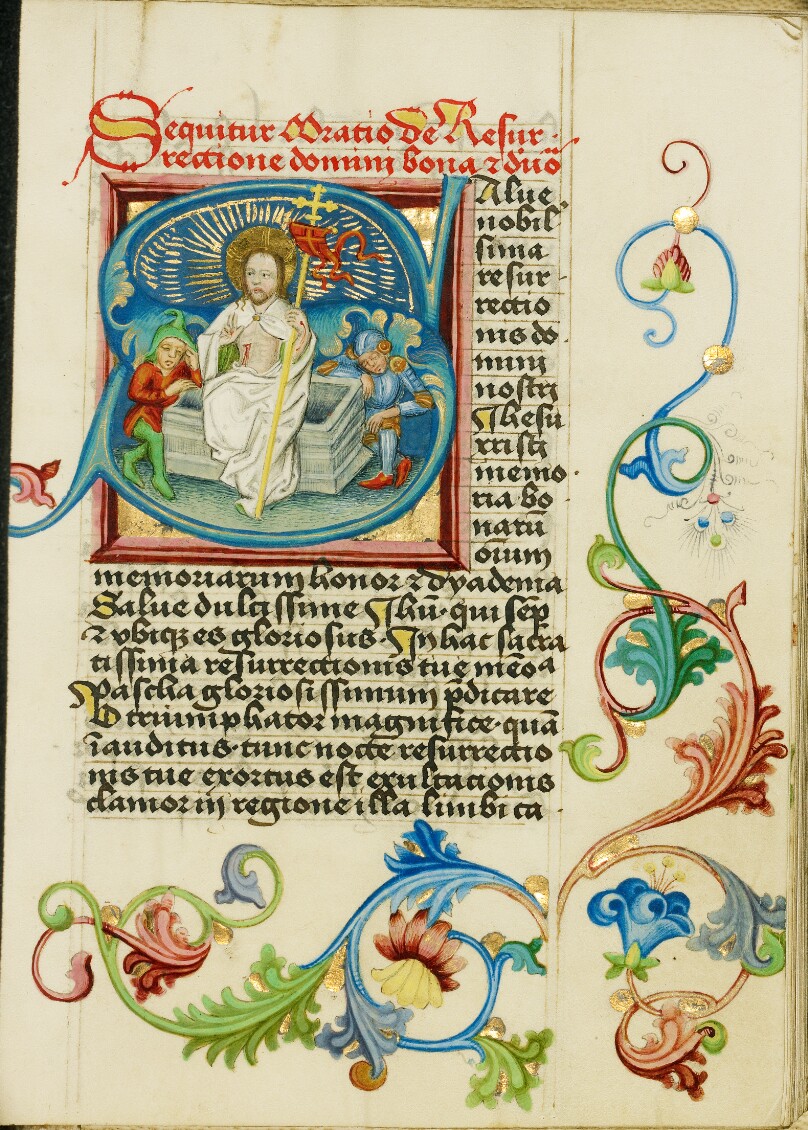 Sequitur Oratio de Resur-
rectione domini bona ⁊ deuo
Salue
nobilis
sima
resur
rectio
nis do
mini
nostri
Jhesu
xristi
memo
ria bo
narū
oīum
memoriarum honor ⁊ dyadema
Salue dulcissime Jhū· qui semp
⁊ vbiqꝫ es gloriosus· In hac sacra
tissima resurrectionis tue
Pascha gloriosissimum p̄dicare
O triumphator magnifice· quā
īauditus· tunc nocte resurrectio
nis tue exortus est exultacionis
clamor in regione illa limbica